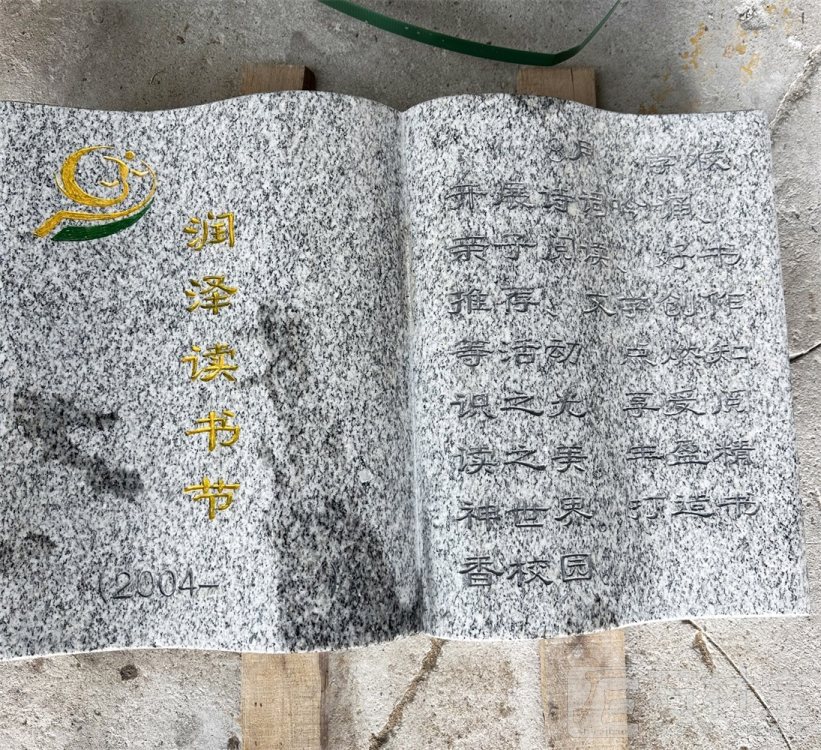 润泽读书节
(2004-
8月 学校
开展
亲子阅读、好书
推荐、文学创作
等活动 点燃知
识之光 享受阅
读之美 丰盈精
神世界 打造书
香校园